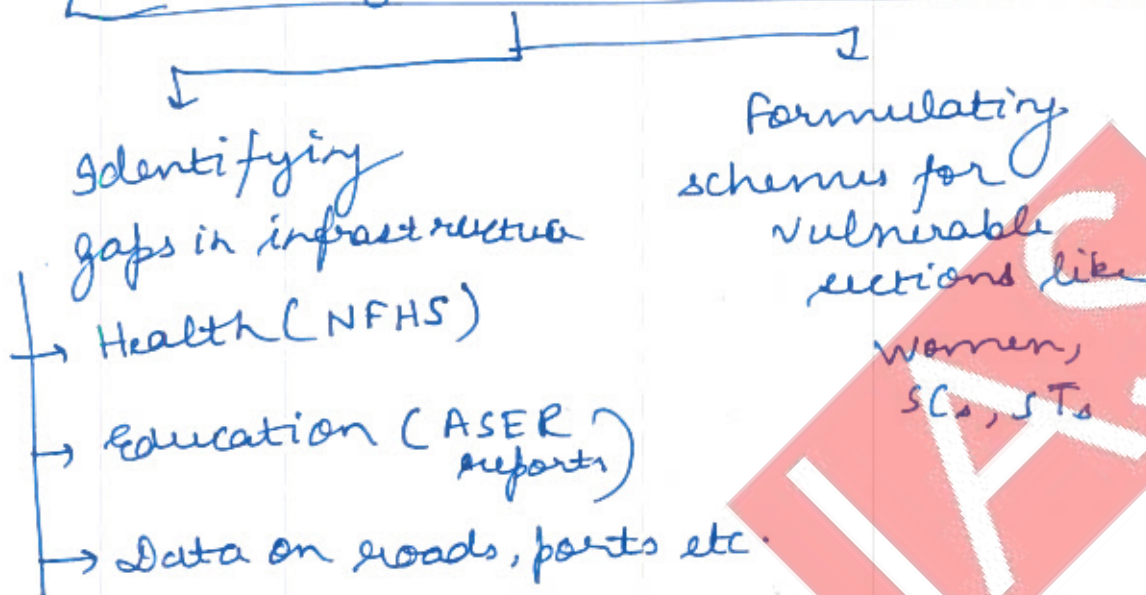 Identifying
gaps in infrastructure
→ Health (NFHS)
→ Education (ASER
reports)
→ Data on roads, ports etc.
Formulating
schemes for
vulnerable
sections like
women,
SCs, STs
IAS